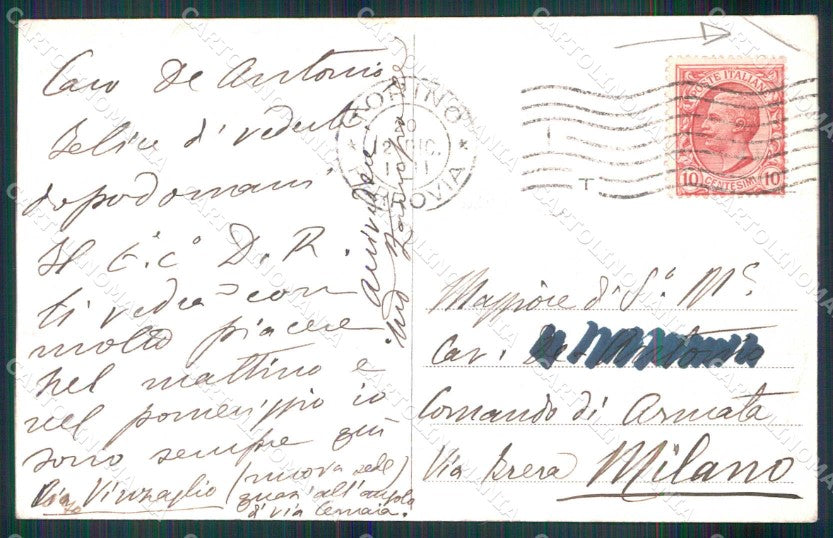 Caro De Antonio
felice di vederti
dopodomani.
Il G.c° D. R.
ti vedrà con
molto piacere
nel mattino e
nel pomeriggio io
sono sempre qui
Via Vinzaglio (nuova sede
quasi all'angolo
di via Cernaia.)
TORINO
FERROVIA
POSTE ITALIANE
10 CENTESIMI 10
Maggiore di S.° M.e
Cav. De Antonio
Comando di Armata
Via Brera Milano
CARTOLINOMANIA